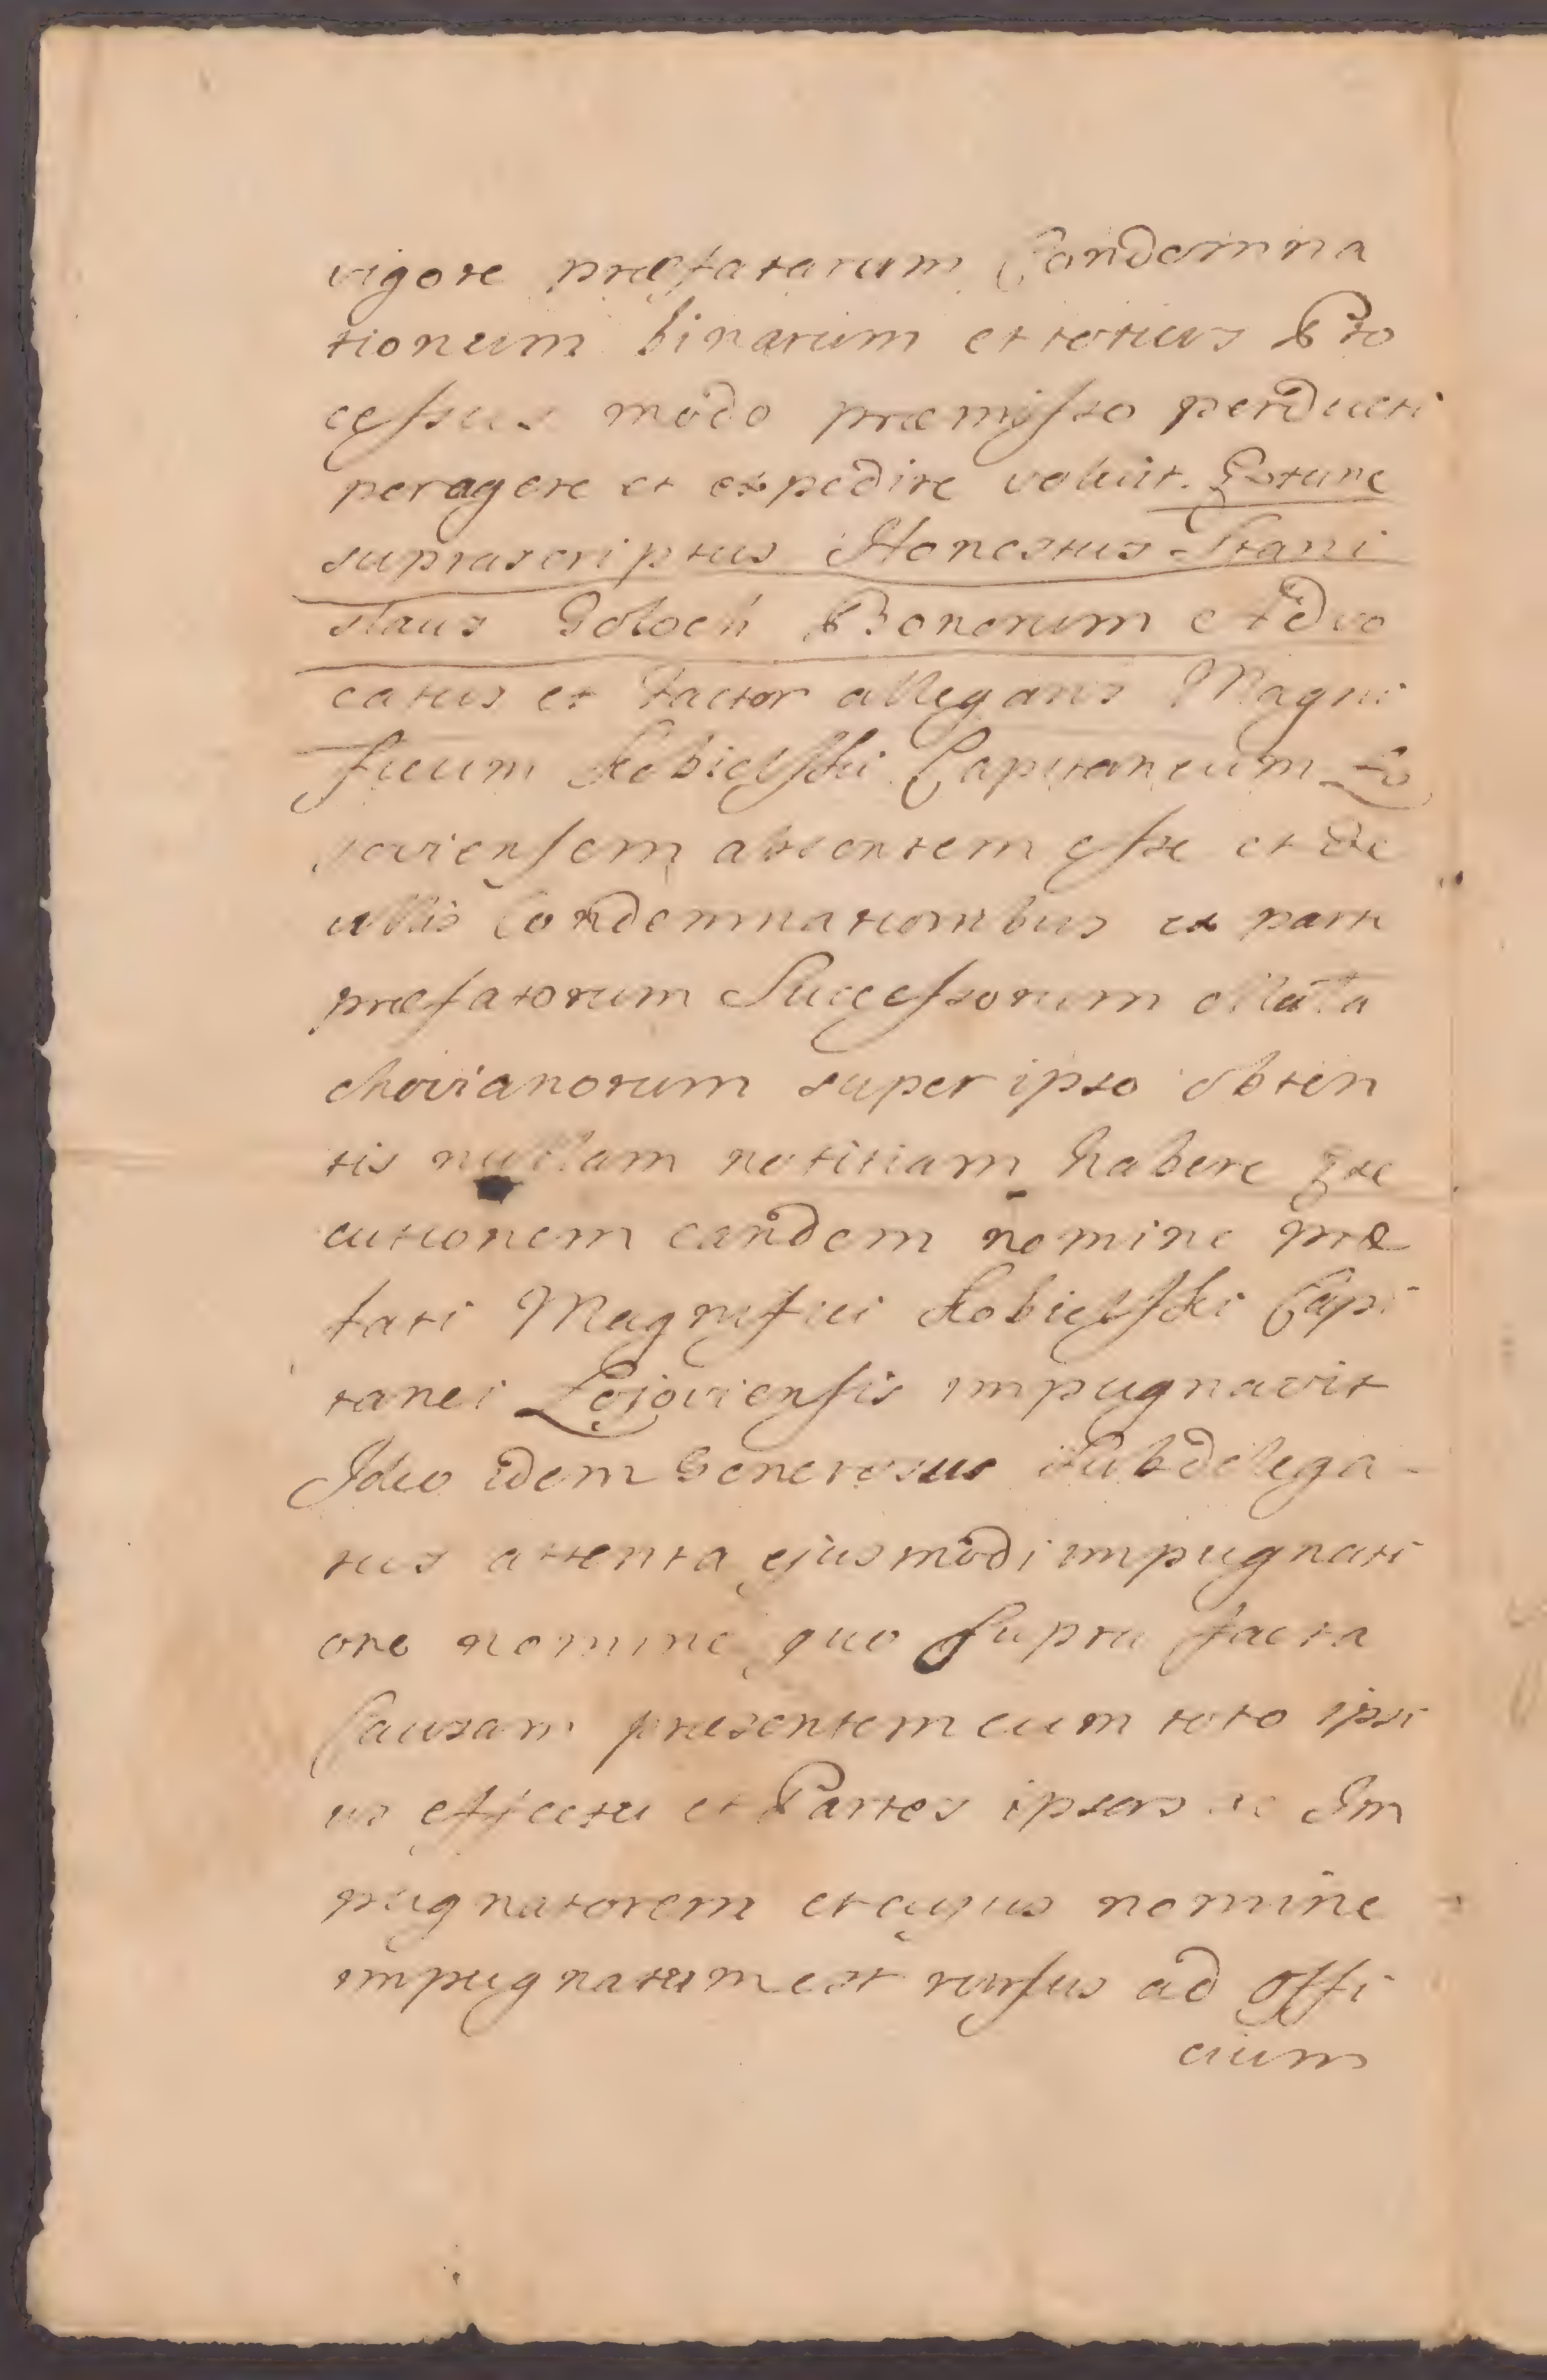 vigore præfatarum Condemna
tionum binarum et totius Pro
cessus modo præmisso perducti
peragere et expedire voluit. Et tunc
suprascriptus Honestus Stani
slaus Goloch Bonorum Advo
catus et factor allegans Magni
ficum Kobielski Capitaneum Lo
joviensem absentem esse et de
ullis Condemnationibus ex parte
præfatorum Successorum Mała
chovianorum super ipso obten
tis nullam notitiam habere Exe
cutionem eandem nomine præ
fati Magnifici Kobielski Capi
tanei Lojoviensis impugnavit
Ideo idem Generosus Subdelega-
tus attenta ejusmodi impugnati
one nomine quo supra facta
Causam præsentem cum toto ipsi
us effectu et Partes ipsas ac Im
pugnatorem et cujus nomine
impugnatum est rursus ad Offi
cium